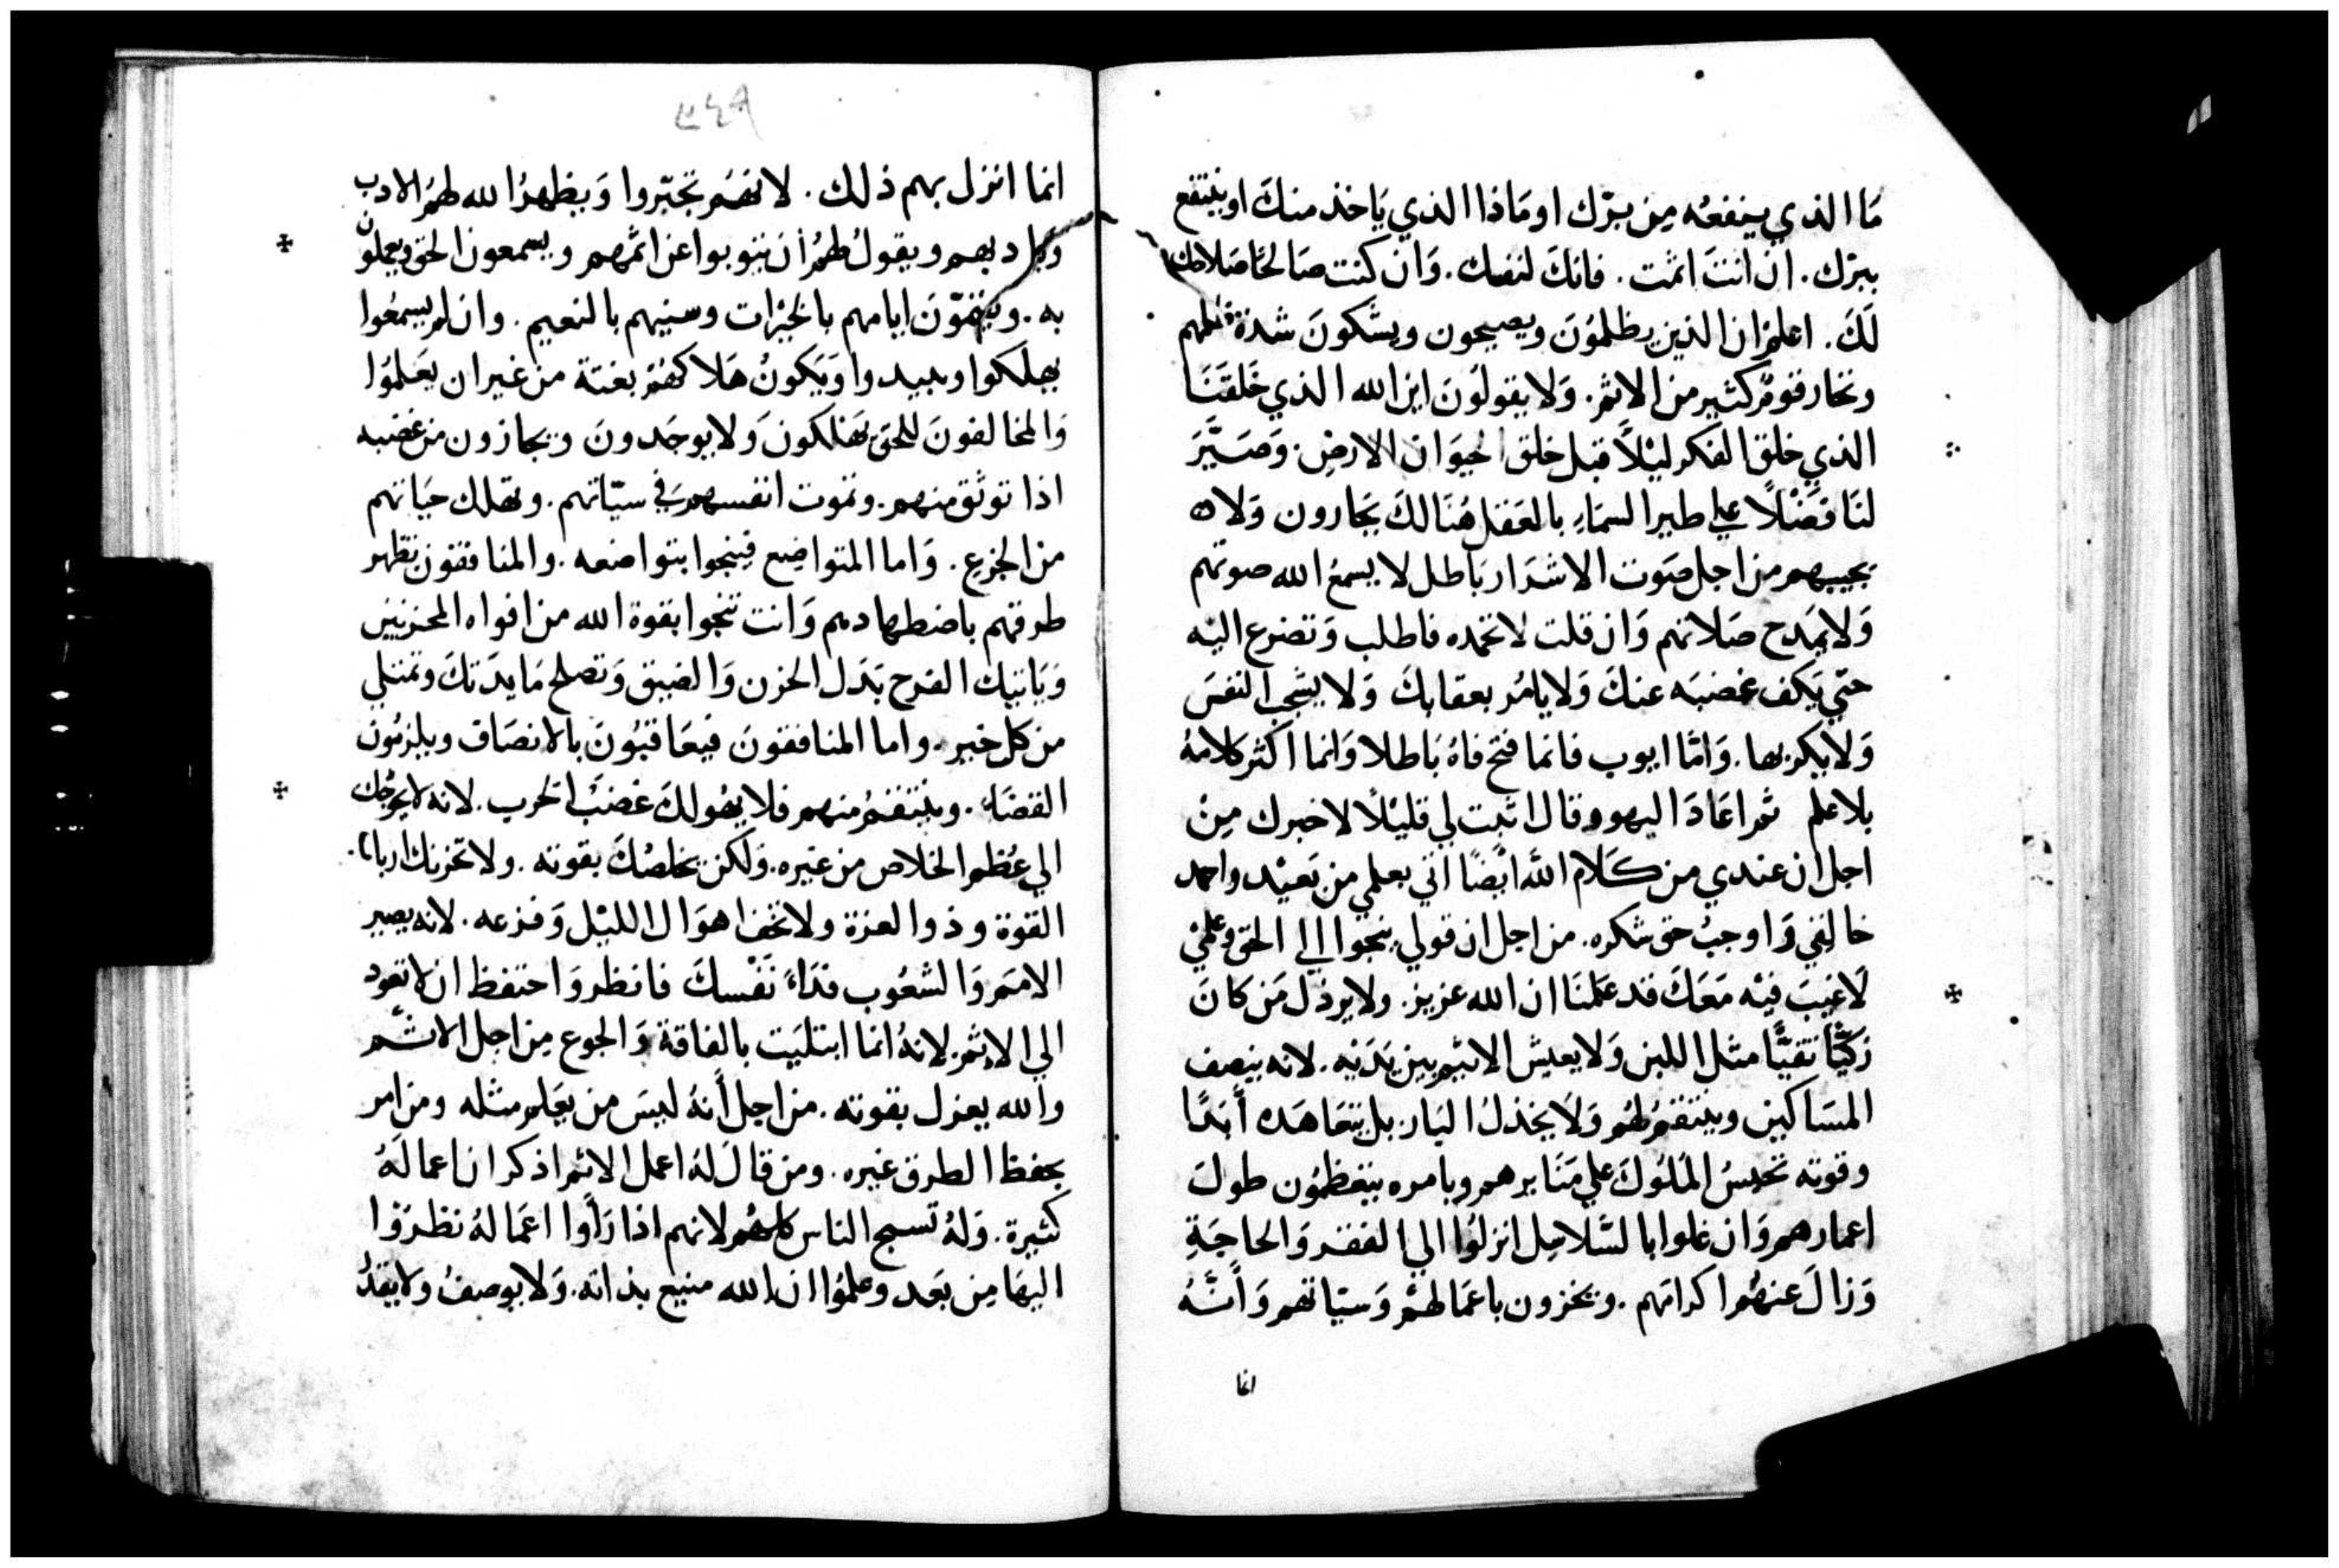 مَا الذي ينفعُه مِن برّك او مَاذا الذي يَاخذ منكَ او ينتفع
ببرّك . ان انتَ اثمت . فانكَ لنفسك . وَان كنت صَالحًا صَلاحك
لَكَ . اعلم ان الذين يظلمُونَ ويصيحون ويشكونَ شدة ظلمهم
وتخار قوم كثير من الاثم . وَلا يقولوُنَ اين الله الذي خَلقنَا
الذي خلق الفكر ليْلاً قبل خلق الحيَوَان الارض . وَصَيَّرَ
لنَا فضْلاً علي طير السمَاءِ بالعَقل هُنَالكَ يَجارون وَلا
يجيبهم من اجل صَوت الاشرَار بَاطل لا يسمعُ الله صوتهم
وَلا يمدح صَلاتهم وَان قلت لا تحمده فاطلب وَتضرع اليْه
حتّي يَكف غضبَه عنكَ وَلا يامُر بعقابكَ وَلا يشجب النفسَ
وَلا يكربها . وَامَّا ايوب فانما فتح فاهُ بَاطلا وَانما اكثر كلامهُ
بلا علم ثم اعَادَ اليهو وقال اثبت لي قليْلاً لاخبرك مِنْ
اجل ان عندي من كَلام اللّه ايْضًا اتي بعلمي من بَعيْد واحمد
خالِقي وَاوجبُ حق شكره . من اجل ان قولي ينجوا الي الحق وعلميْ
لاَ عَيبَ فيْه مَعَكَ قد عَلمنَا ان الله عزيز . ولا يرذل مَن كانَ
زَكيًّا نقيًّا مثل اللبن وَلا يعيش الاثيم بين يَدَيْه . لانه ينصف
المسَاكين وينتقمُ لهُم وَلاَ يخذلُ البَار بل يتعَاهَده أبَدًا
وقوته تجلسُ المُلُوكَ علي مَنَابرهم وبامره يتعظمُون طولَ
اعمارهم وَان غلوا بالسّلاسِل انزلوُا الي الفقر وَالحاجَةِ
وَزالَ عنهُم اكرامهم . ويخزون باعمَالهُم وَسيّاتهم وَأنَّهُ
انما
٣٤٩
انما انزل بهم ذلك . لانهُم تجبّروا وَيظهرُ الله لهمُ الادب
دبهم ويقولُ لهمُ أن يتوبوا عن اثمهم ويسمعون الحق ويعملون
به . ويتمّونَ ايامهم بالخيْرات وسنيهم بالنعيم . وان لم يسمعُوا
يهلكوا ويبيدوا وَيَكونُ هَلاكهُم بغتة من غير ان يعَلمُوا
وَالمخالفونَ للحق يَهْلكون وَلا يوجَدونَ ويجازون من غضبه
اذا توثق منهم . وتموت انفسهم في سيّاتهم . وتهلك حيَاتهم
من الجزع . وَاما المتواضِع فينجوا بتواضعه . والمنافقون تظهر
طرقهم باضطهادهم وَانت تنجوا بقوة الله من افواه المحزنين
وَيَاتيك الفرح بَدَل الحزن وَالضيق وَتصلح مَايدَتكَ وتمتلي
من كل خير . واما المنافقونَ فيعَاقبُونَ بالانصَاف ويلزمُون
القضَاء . وينتقمُ منهم فلا يهُولكَ غضَب الحرب . لانه لا يحوجك
الي عُظم الخلاص من غيره . وَلكن يخلصُكَ بقوته . ولا تحزنك ارباب
القوة وذوا العزة ولا تخف اهوَال الليْل وَفزعه . لانه يصير
الامَم وَالشعُوب فدَاء نَفْسكَ فانظر وَاحتفظ ان لا تعود
الي الاِثم لانهُ انما ابتليَت بالفاقة وَالجوع مِن اجل الاثم
والله يعزل بقوته . من اجل أنهُ ليسَ من يَعلم مثله ومن امر
بحفظ الطرق غيره . ومن قالَ لهُ اعمل الاثم اذكر ان اعمالَهُ
كثيرة . وَلهُ تسبح الناس كلهُم لانهم اذا رَاوا اعمَالهُ نظرُوا
اليهَا مِن بَعد وعلمُوا ان الله منيع بذاته . وَلا يوصفُ وَلا يقدُ